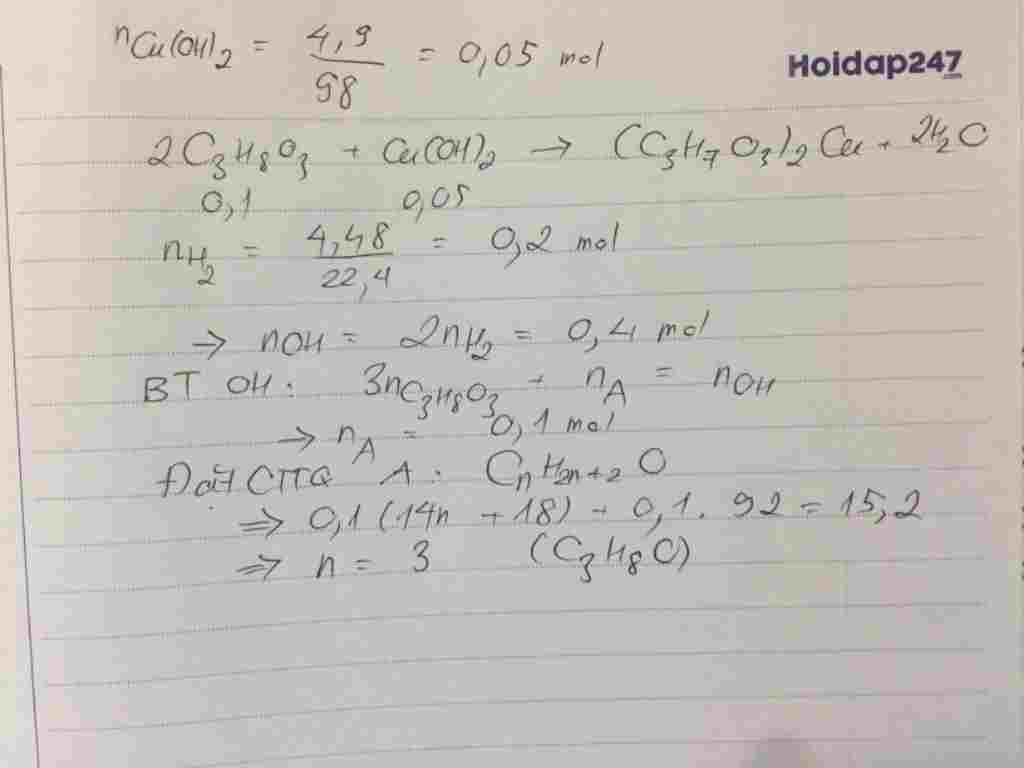 nCu(OH)₂ = 4,9 / 98 = 0,05 mol
Hoidap247
2C₃H₈O₃ + Cu(OH)₂ → (C₃H₇O₃)₂Cu + 2H₂O
0,1 0,05
nH₂ = 4,48 / 22,4 = 0,2 mol
→ nOH = 2nH₂ = 0,4 mol
BT OH: 3nC₃H₈O₃ + nA = nOH
→ nA = 0,1 mol
Đặt CTTQ A: CnH2n+2O
⇒ 0,1 (14n + 18) + 0,1. 92 = 15,2
⇒ n = 3 (C₃H₈O)